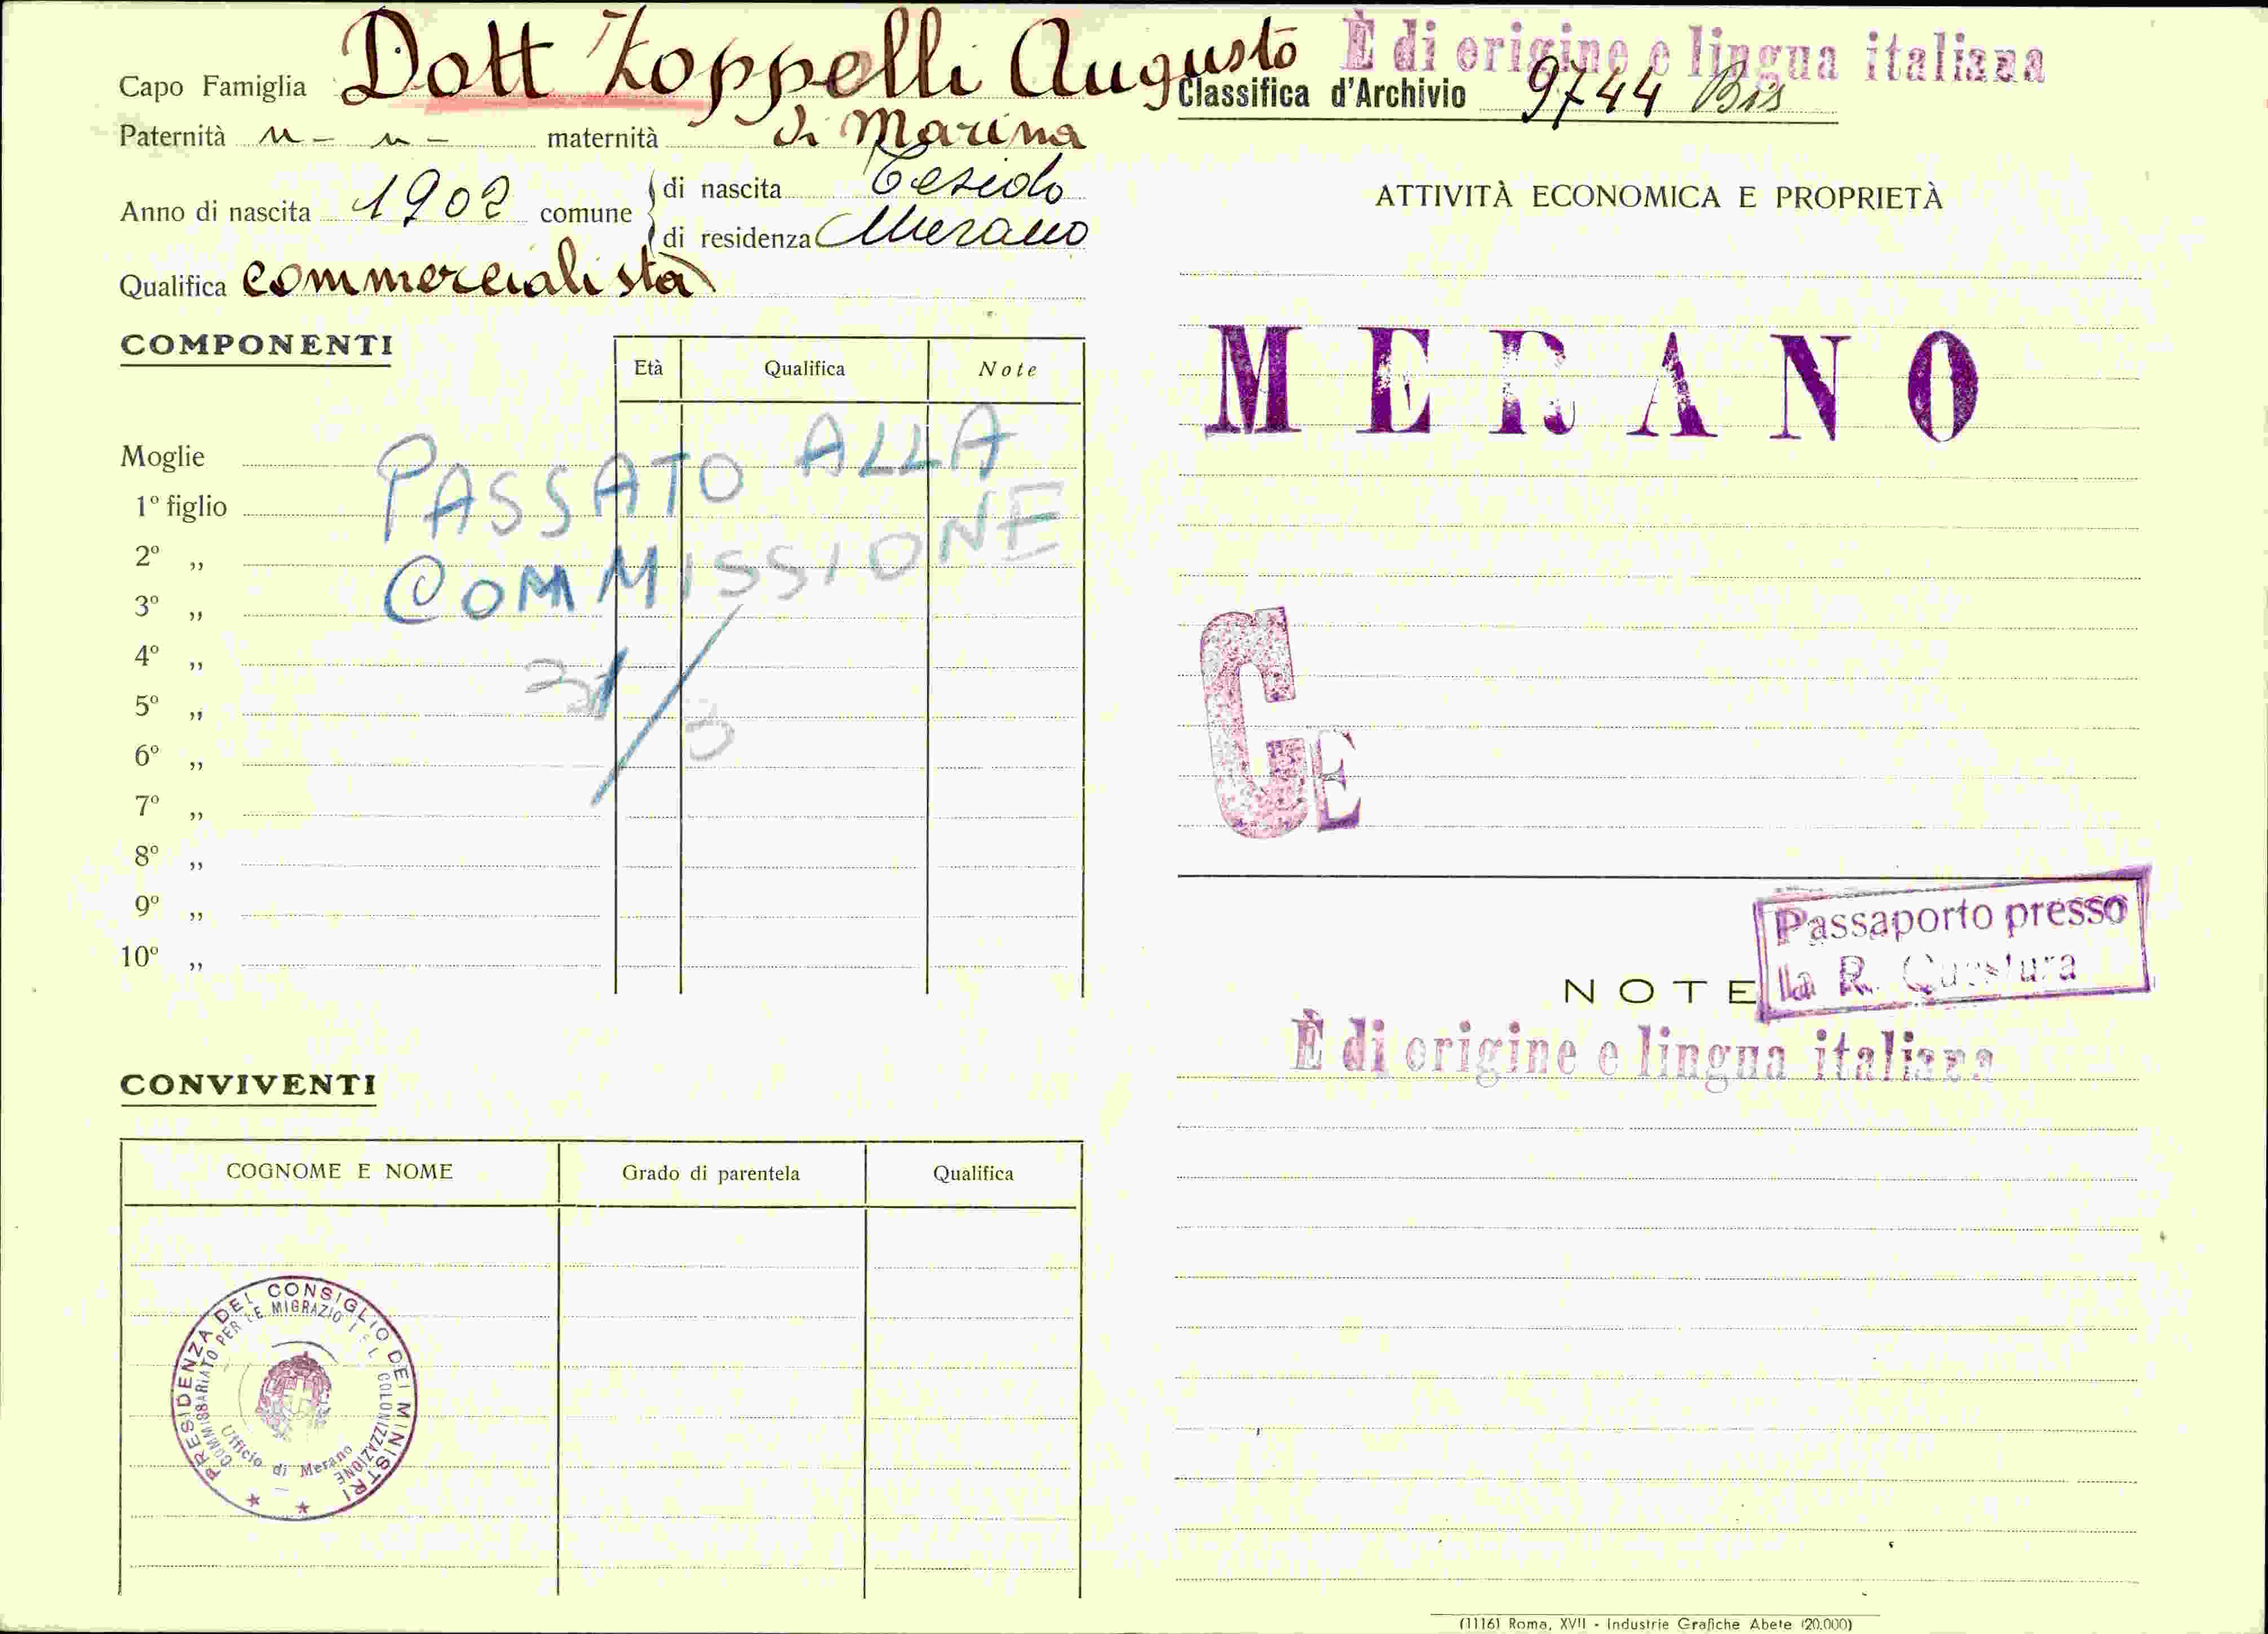 Capo Famiglia Dott Zoppelli Augusto
Paternità n - n - maternità di Marina
Anno di nascita 1902 comune di nascita Tesido
di residenza Merano
Qualifica commercialista
COMPONENTI
Età Qualifica Note
Moglie
1º figlio
2º „
3º „
4º „
5º „
6º „
7º „
8º „
9º „
10º „
PASSATO ALLA
COMMISSIONE
31/
CONVIVENTI
COGNOME E NOME Grado di parentela Qualifica
PRESIDENZA DEL CONSIGLIO DEI MINISTRI
COMMISSARIATO PER LE MIGRAZIONI E L COLONIZZAZIONE
Ufficio di Merano
È di origine e lingua italiana
Classifica d'Archivio 9744 Bis
ATTIVITÀ ECONOMICA E PROPRIETÀ
MERANO
CE
Passaporto presso
la R. Questura
NOTE
È di origine e lingua italiana
(1116) Roma, XVII - Industrie Grafiche Abete (20.000)